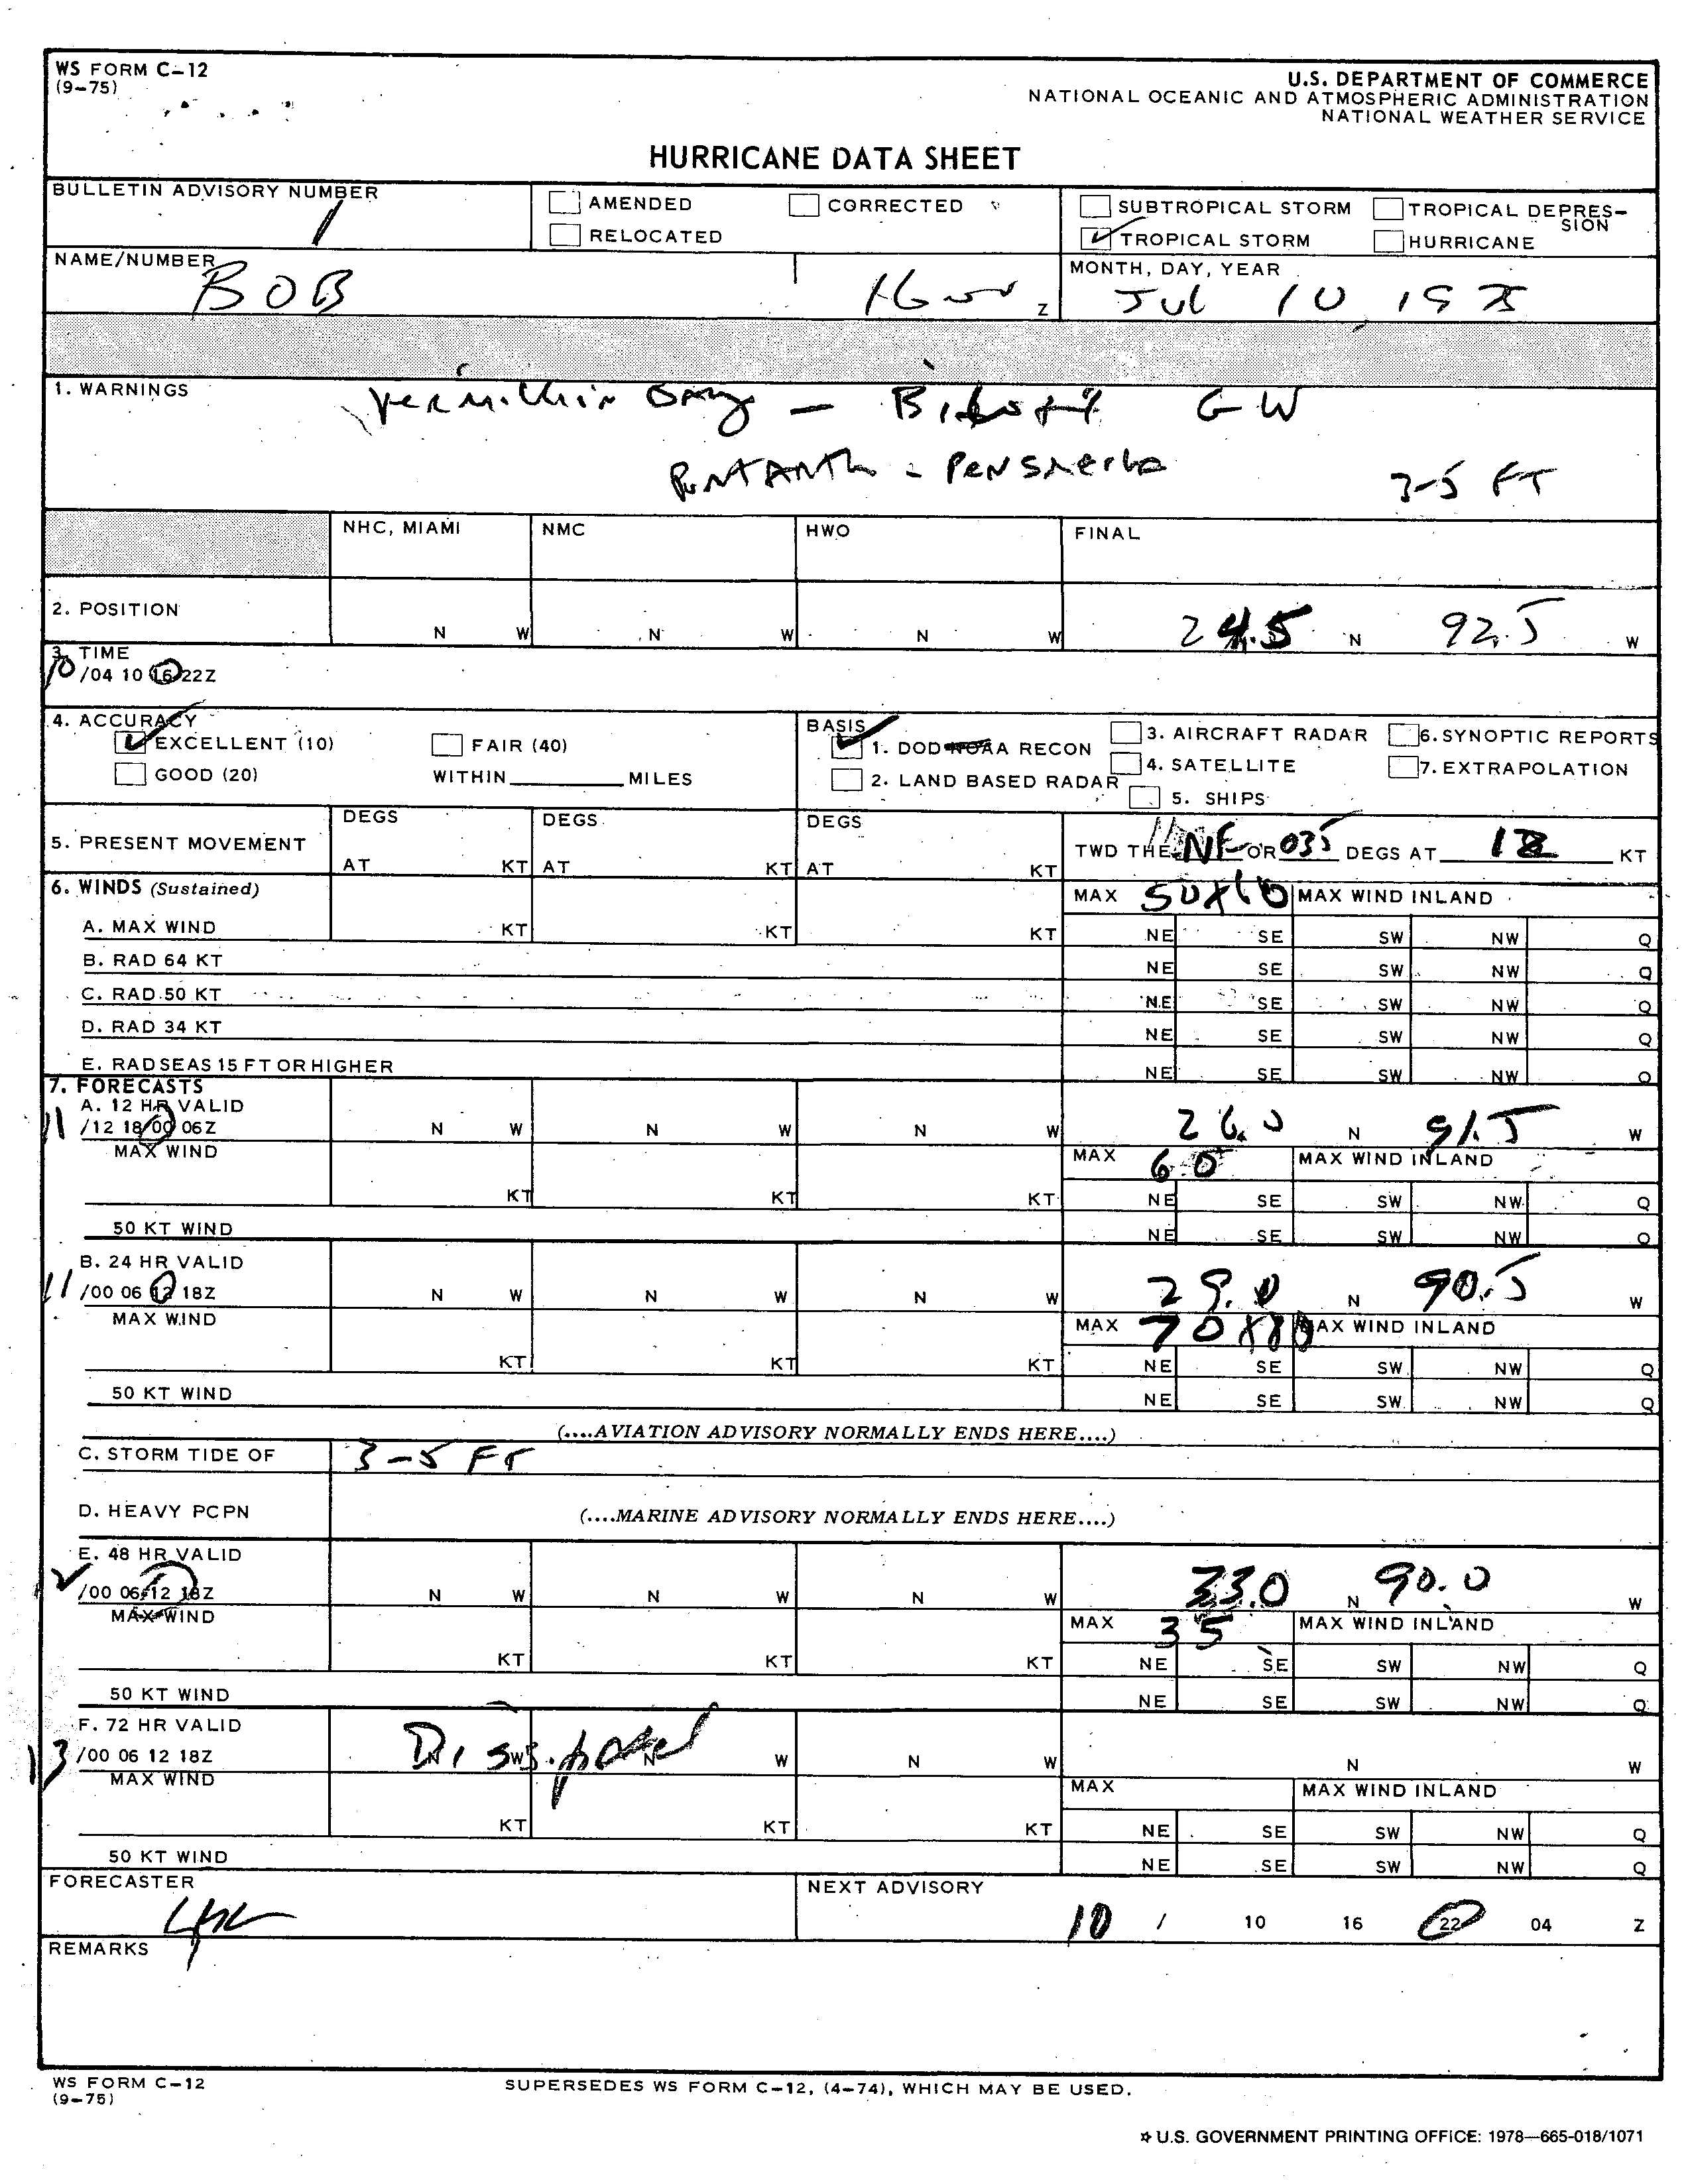 WS FORM C-12
(9-75)
U.S. DEPARTMENT OF COMMERCE
NATIONAL OCEANIC AND ATMOSPHERIC ADMINISTRATION
NATIONAL WEATHER SERVICE
HURRICANE DATA SHEET
BULLETIN ADVISORY NUMBER
1
AMENDED CORRECTED
RELOCATED
SUBTROPICAL STORM TROPICAL DEPRES-
SION
TROPICAL STORM HURRICANE
NAME/NUMBER
BOB
Z
MONTH, DAY, YEAR
Jul 10
1. WARNINGS
GW
3-5 FT
NHC, MIAMI NMC HWO FINAL
2. POSITION N W N W N W 24.5 N 92.5 W
3. TIME
10 /04 10 16 22Z
4. ACCURACY
EXCELLENT (10) FAIR (40)
GOOD (20) WITHIN MILES
BASIS
1. DOD NOAA RECON 3. AIRCRAFT RADAR 6. SYNOPTIC REPORTS
2. LAND BASED RADAR 4. SATELLITE 7. EXTRAPOLATION
5. SHIPS
5. PRESENT MOVEMENT DEGS DEGS DEGS
AT KT AT KT AT KT
TWD THE NE OR 035 DEGS AT KT
6. WINDS (Sustained) MAX 50 MAX WIND INLAND
A. MAX WIND KT KT KT NE SE SW NW Q
B. RAD 64 KT NE SE SW NW Q
C. RAD 50 KT NE SE SW NW Q
D. RAD 34 KT NE SE SW NW Q
E. RAD SEAS 15 FT OR HIGHER NE SE SW NW Q
7. FORECASTS
A. 12 HR VALID
11 /12 18 00 06Z N W N W N W 26.0 N 91.5 W
MAX WIND MAX 60 MAX WIND INLAND
KT KT KT NE SE SW NW Q
50 KT WIND NE SE SW NW Q
B. 24 HR VALID
11 /00 06 12 18Z N W N W N W 29.0 N 90.5 W
MAX WIND MAX 70 MAX WIND INLAND
KT KT KT NE SE SW NW Q
50 KT WIND NE SE SW NW Q
(....AVIATION ADVISORY NORMALLY ENDS HERE....)
C. STORM TIDE OF 3-5 FT
D. HEAVY PCPN (....MARINE ADVISORY NORMALLY ENDS HERE....)
E. 48 HR VALID
/00 06 12 18Z N W N W N W 33.0 N 90.0 W
MAX WIND MAX 35 MAX WIND INLAND
KT KT KT NE SE SW NW Q
50 KT WIND NE SE SW NW Q
F. 72 HR VALID
13 /00 06 12 18Z N W N W N W N W
Dissipated
MAX WIND MAX MAX WIND INLAND
KT KT KT NE SE SW NW Q
50 KT WIND NE SE SW NW Q
FORECASTER NEXT ADVISORY
10 / 10 16 22 04 Z
REMARKS
WS FORM C-12
(9-75)
SUPERSEDES WS FORM C-12, (4-74), WHICH MAY BE USED.
☆ U.S. GOVERNMENT PRINTING OFFICE: 1978—665-018/1071